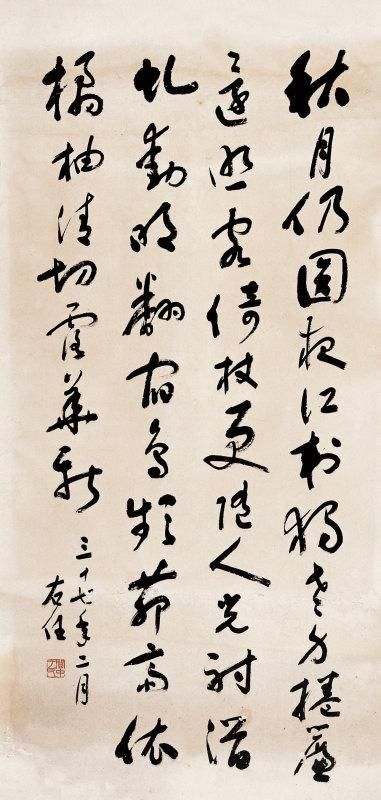 秋月仍圓夜江村獨老身捲簾
還照客倚杖更隨人光射潛
虬動明翻宿鳥頻茆齋依
橘柚清切露華新
三十七年二月
右任